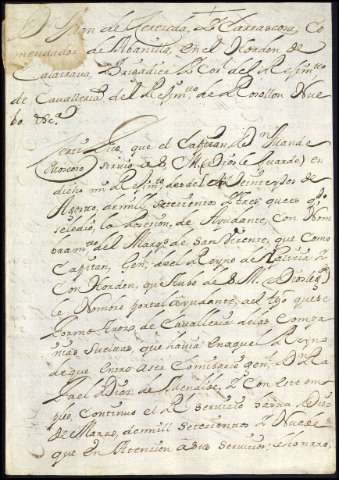 Dn Juan de Cereceda, y Carrascosa, Co
mendador de Moanilla, en el Horden de
Calatrava, Brigadier y Corl del Regimto
de Cavalleria del Regimto de Rosellon Nue
bo &ca
Certifico, que el Capitan Dn Juan de
servio a S. M. (Dios le Guarde) en
dicho mi Regimto desde el Veinte y tres de
Marzo, de mill setecientos y tres que
se le dio la Posesion, de Ayudante, con Nom
bramto del Marqs de San Vicente, que como
Capitan, Genl del Reyno de Galicia y
Con Horden, que tubo de S. M. (Dios le Ge)
le Nombro por tal Ayudante, al que se
formo de Cavalleria de las Compa
nias sueltas, que havia en aquel Reyno
de que entro a ser Comisario genl Dn Ra
fael Diaz de Mendibil, y con este em
pleo, continuo el Rl servicio hasta
de Marzo, de mill setecientos y Nuebe
que en Atencion a sus servicios,